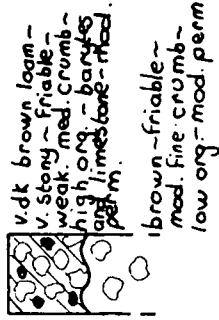 v.dk brown loam-
v. stony - friable -
weak. mod. crumb-
high org. - barytes
and limestone - mod.
perm.
brown - friable -
mod. fine crumb-
low org - mod. perm